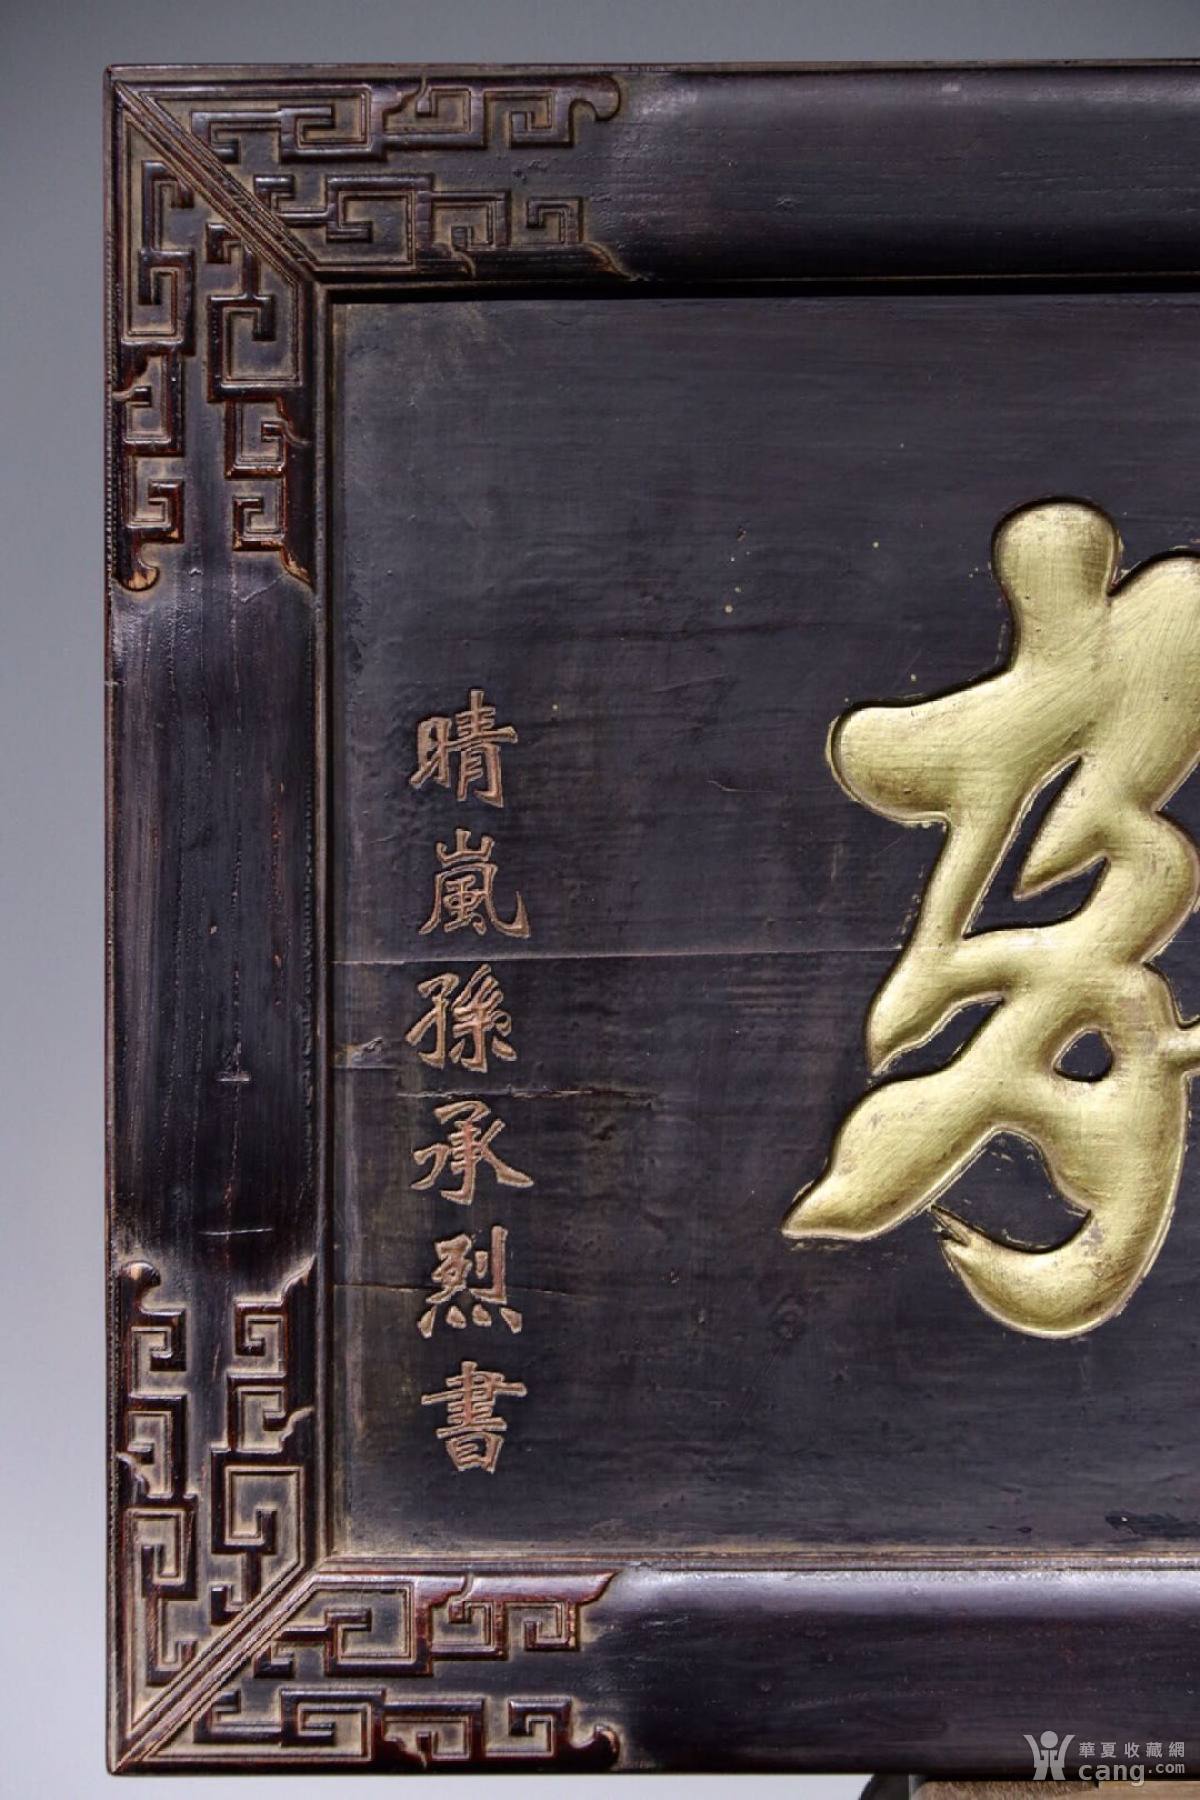 晴嵐孫承烈書
華夏收藏網
cang.com